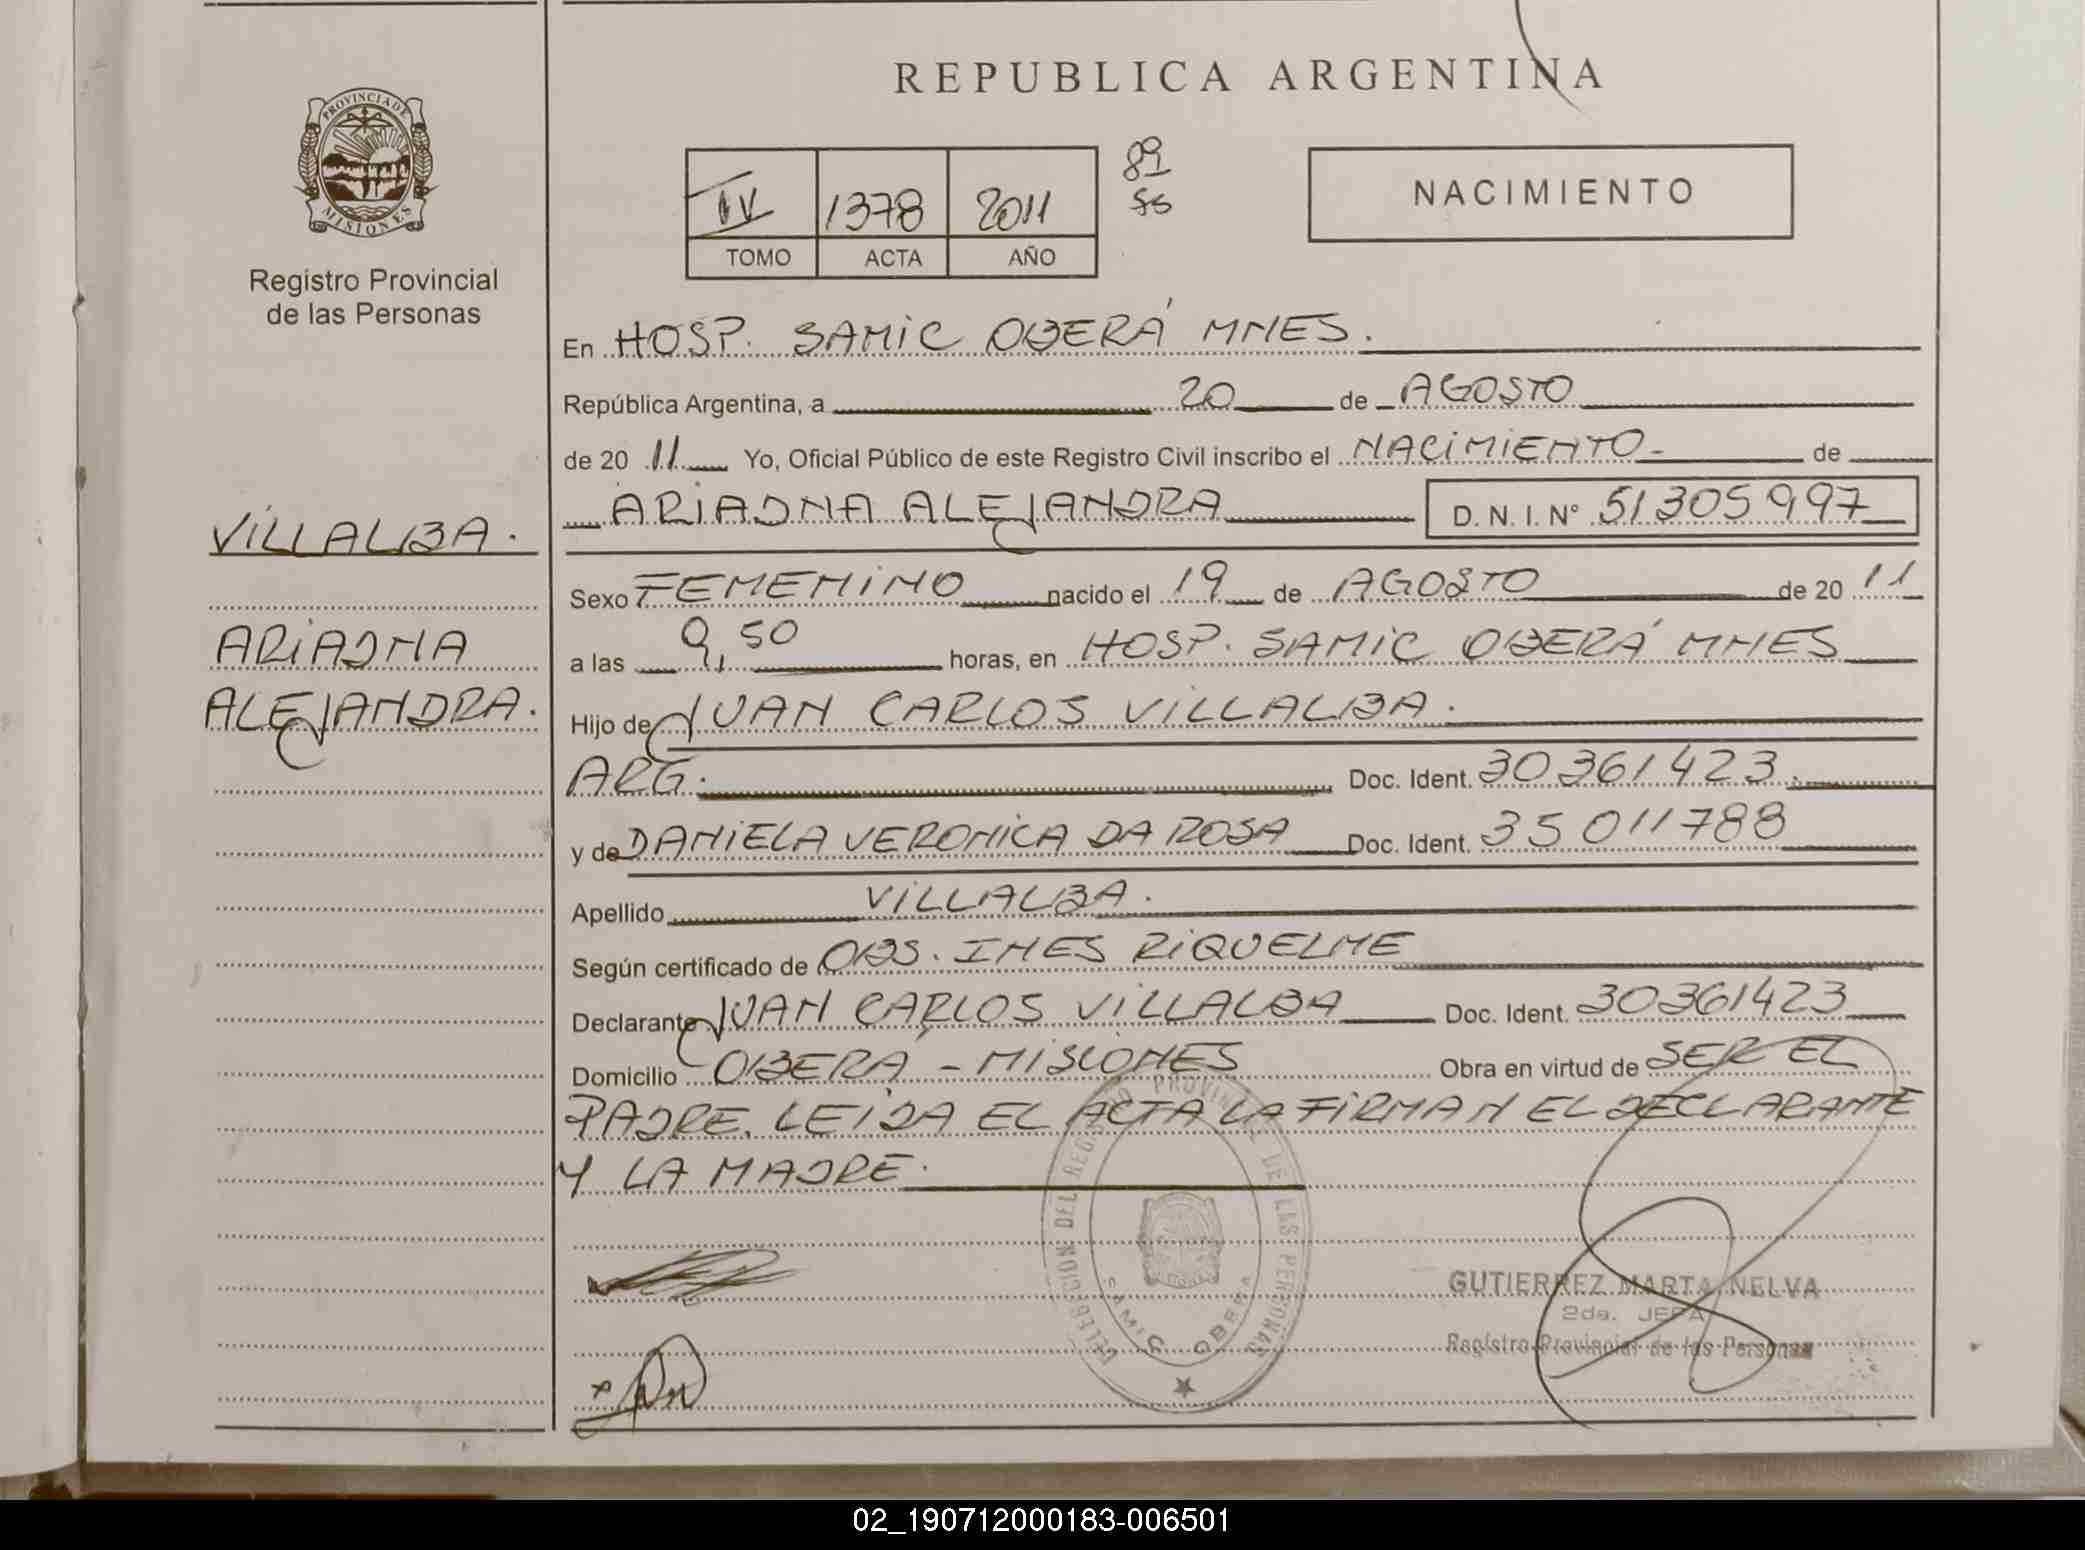 REPUBLICA ARGENTINA
PROVINCIA DE
MISIONES
Registro Provincial
de las Personas
IV 1378 2011
TOMO ACTA AÑO
89
NACIMIENTO
En HOSP. SAMIC OBERÁ MNES.
República Argentina, a 20 de AGOSTO
de 20 11 Yo, Oficial Público de este Registro Civil inscribo el NACIMIENTO - de
ARIADNA ALEJANDRA D. N. I. N° 51305997
VILLALBA.
ARIADNA
ALEJANDRA.
Sexo FEMENINO nacido el 19 de AGOSTO de 20 11
a las 9,50 horas, en HOSP. SAMIC OBERÁ MNES
Hijo de JUAN CARLOS VILLALBA.
ARG. Doc. Ident. 30361423.
y de DANIELA VERONICA DA ROSA Doc. Ident. 35011788
Apellido VILLALBA.
Según certificado de OBS. INES RIQUELME
Declarante JUAN CARLOS VILLALBA Doc. Ident. 30361423
Domicilio OBERA - MISIONES Obra en virtud de SER EL
PADRE. LEIDA EL ACTA LA FIRMAN EL DECLARANTE
Y LA MADRE.
DELEGACION DEL REGISTRO PROVINCIAL DE LAS PERSONAS
SAMIC OBERA
GUTIERREZ MARTA NELVA
2da. JEFA
Registro Provincial de las Personas
02_190712000183-006501